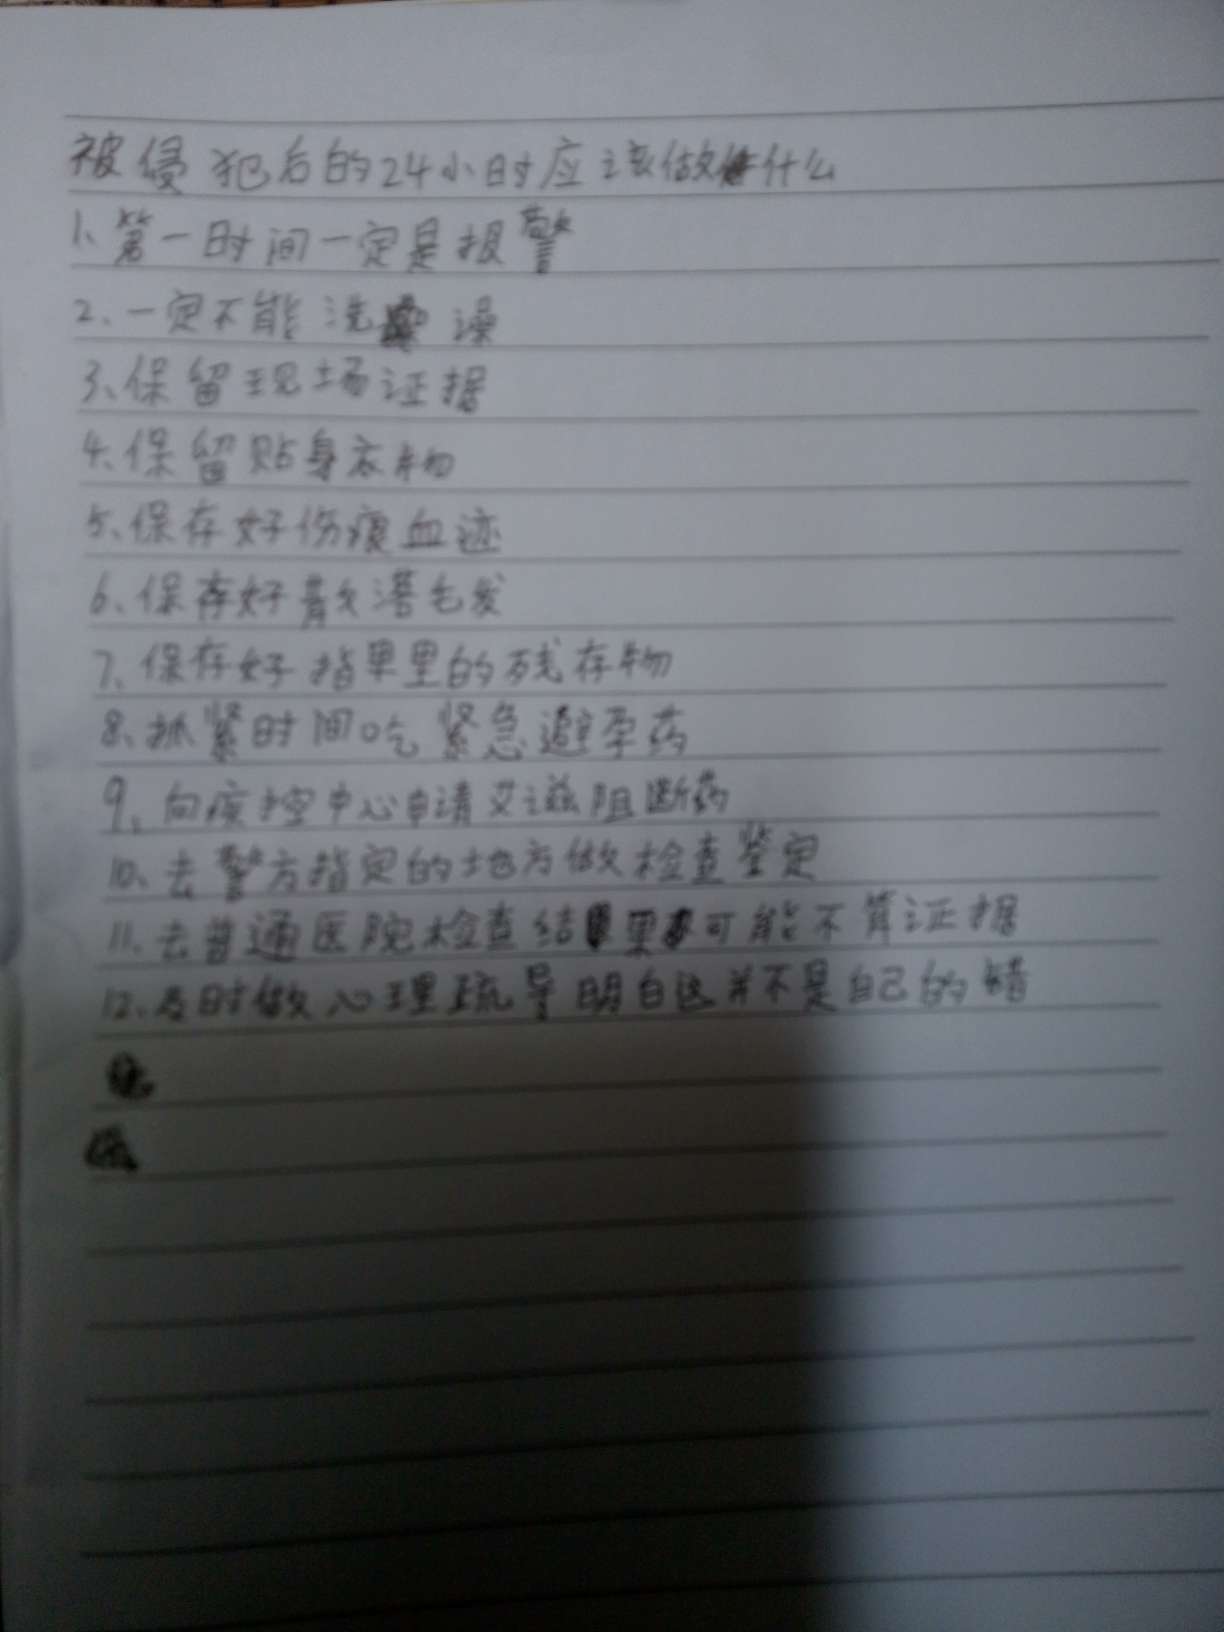 被侵犯后的24小时应该做什么
1、第一时间一定是报警
2、一定不能洗澡
3、保留现场证据
4、保留贴身衣物
5、保存好伤痕血迹
6、保存好散落毛发
7、保存好指甲里的残存物
8、抓紧时间吃紧急避孕药
9、向疾控中心申请艾滋阻断药
10、去警方指定的地方做检查鉴定
11、去普通医院检查结果可能不算证据
12、及时做心理疏导明白这并不是自己的错